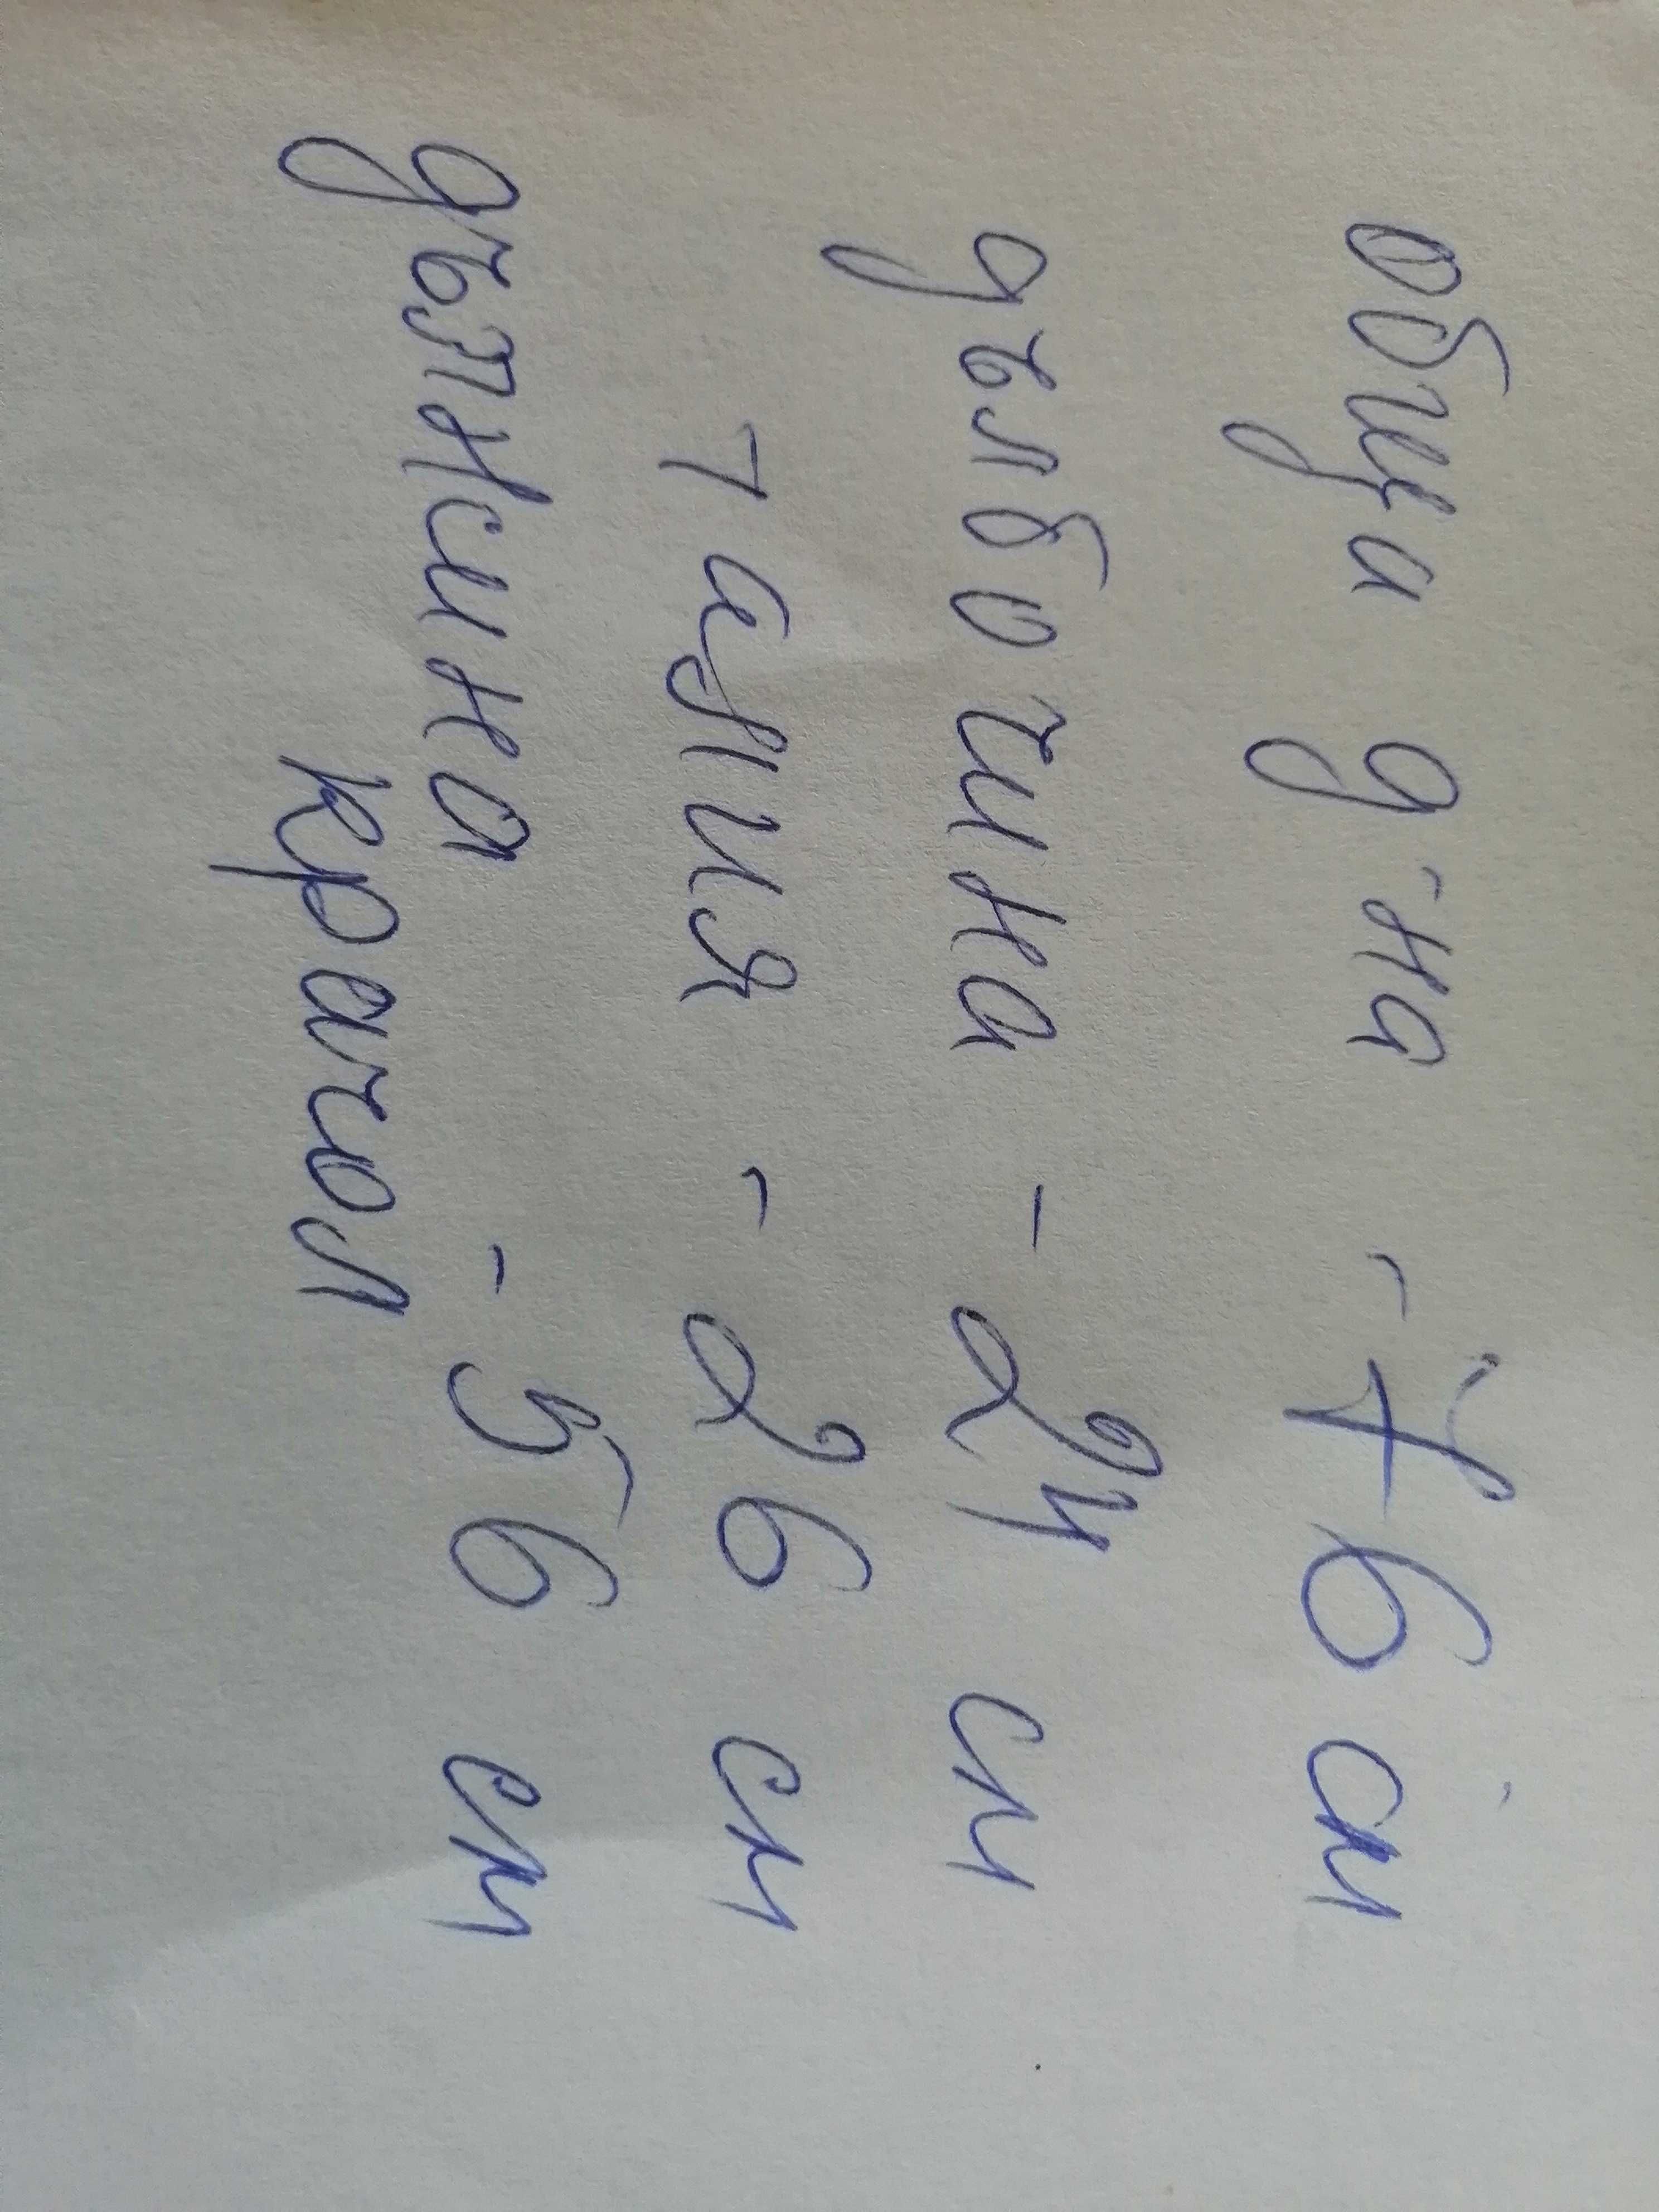 обща д-на - 76 см
дълбочина - 24 см
талия - 26 см
дължина - 56 см
крачол